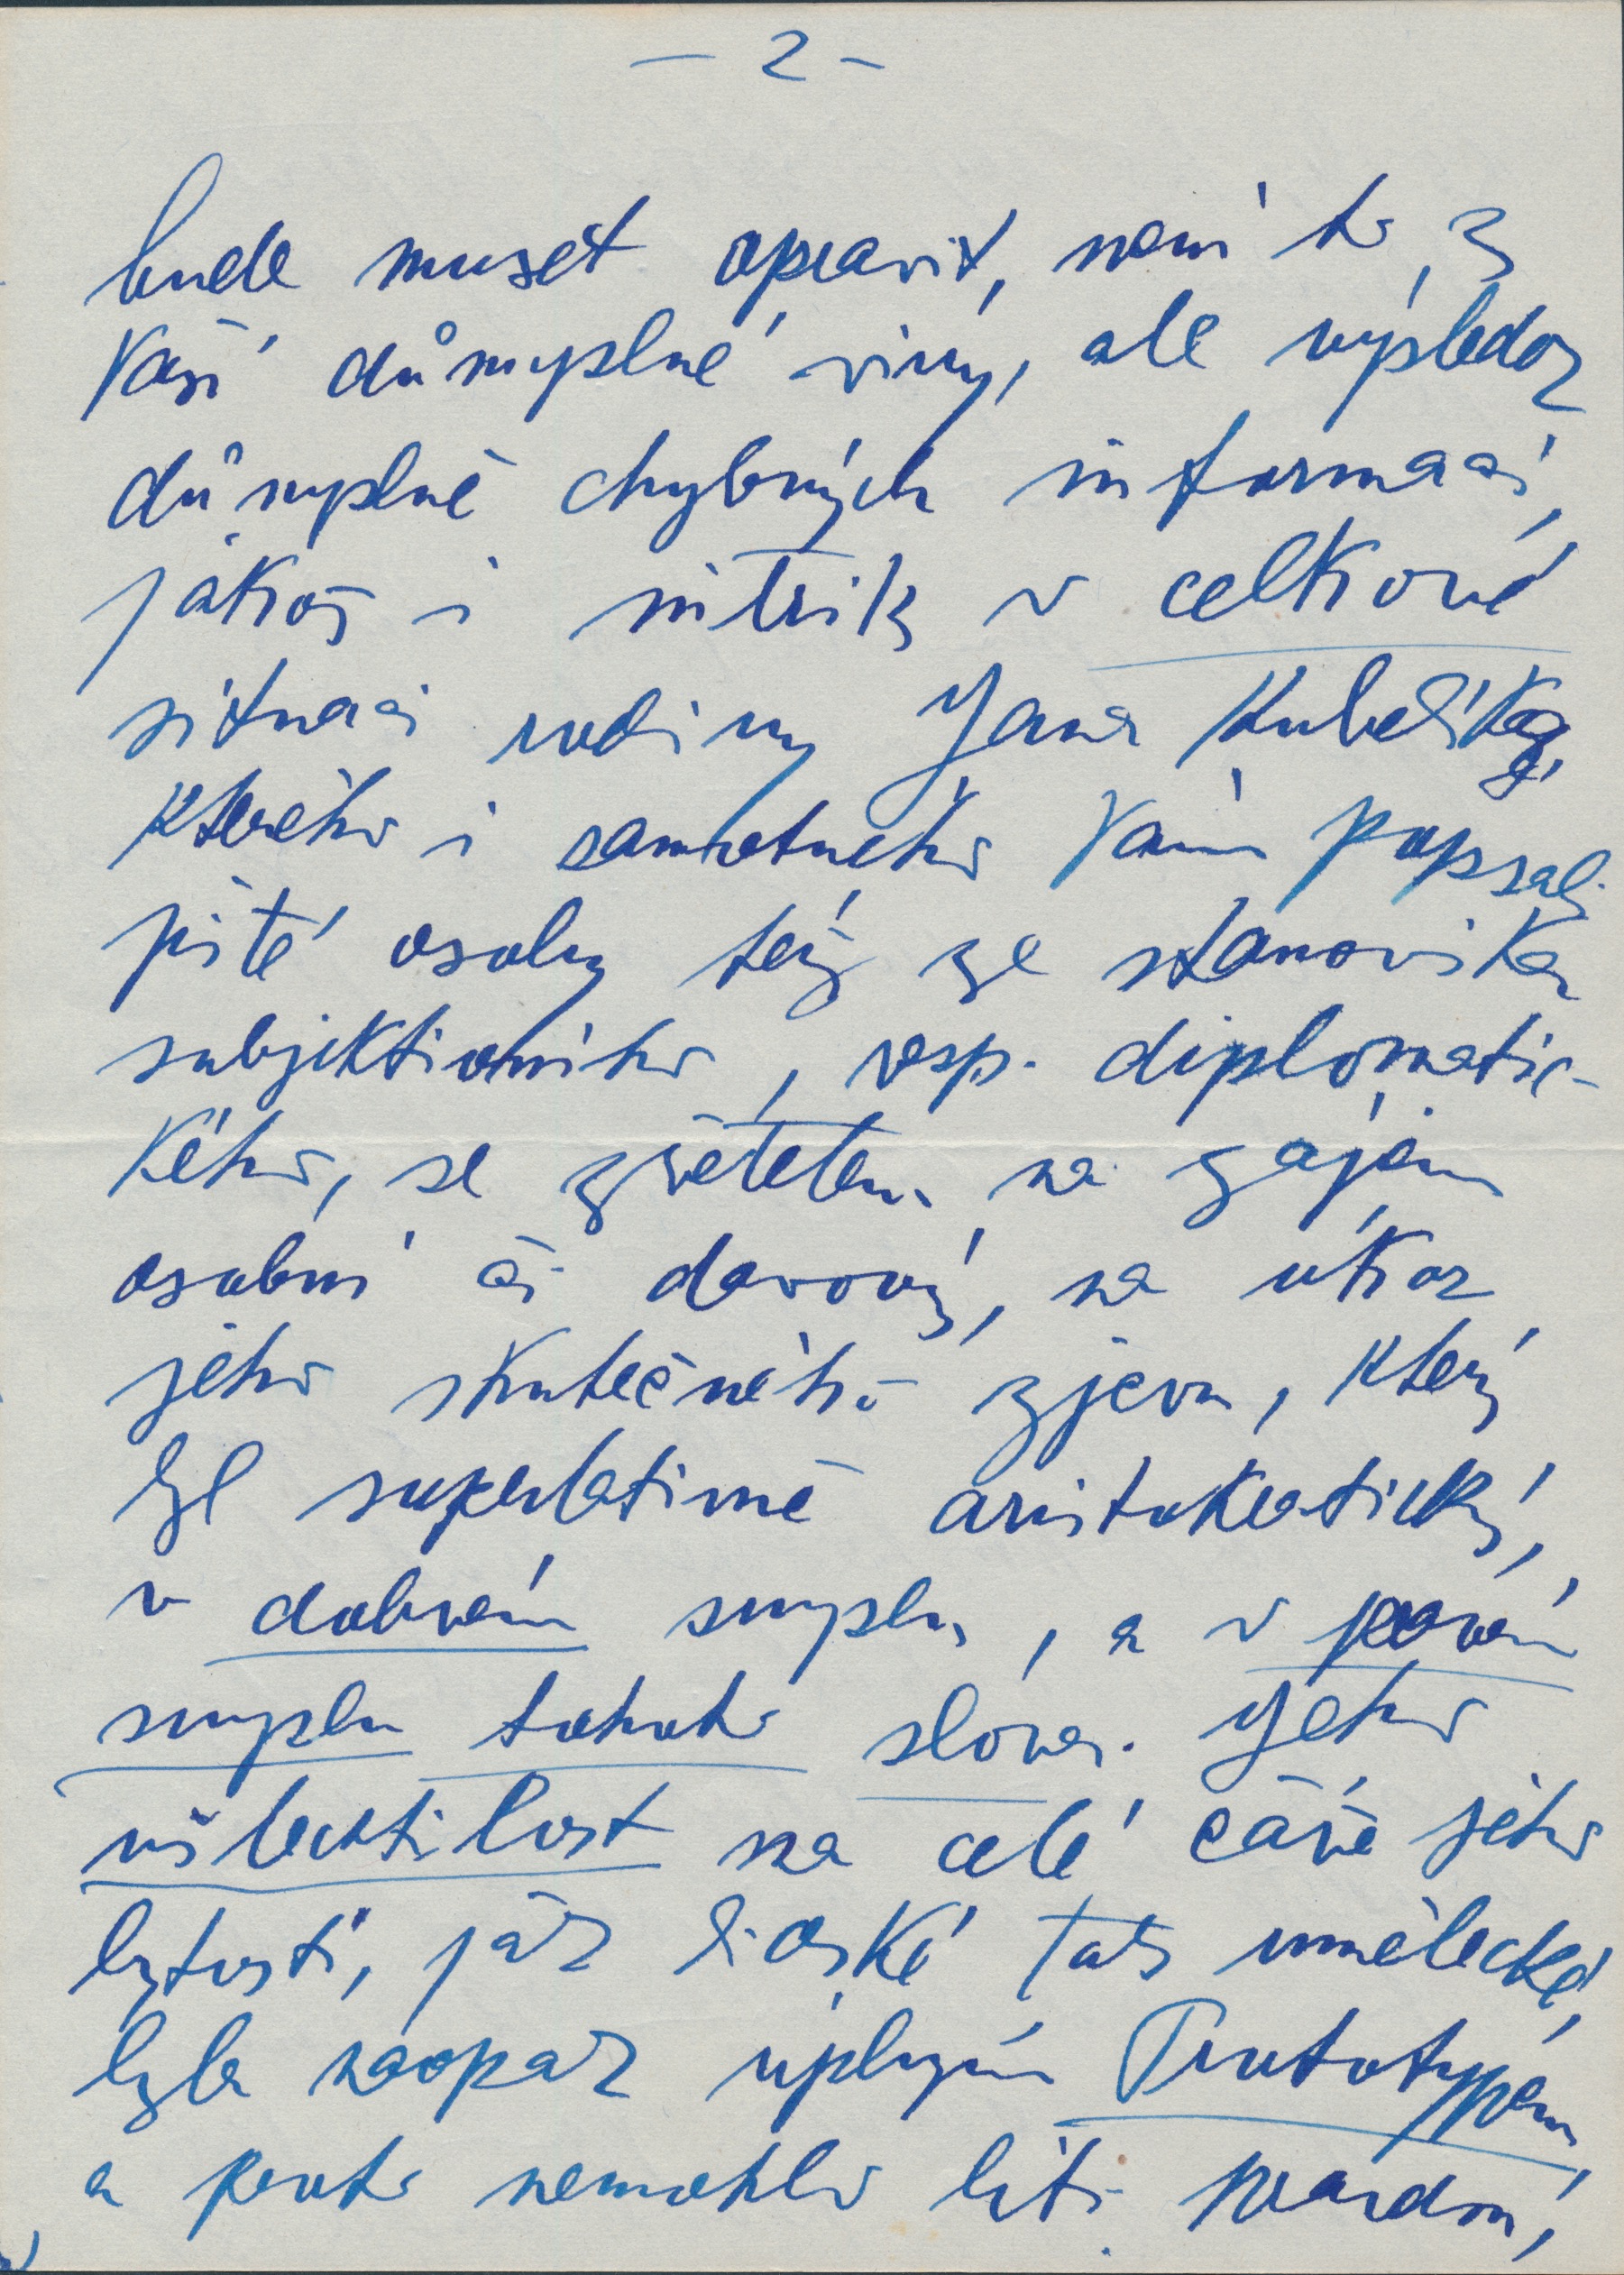 – 2 –
bude muset opravit, není to z
Vaší důmyslné viny, ale výsledek
důmyslně chybných informací,
jakož i intrik v celkové
situaci rodiny Jana Kubelíka,
kterého i samotného Vám popsaly
jisté osoby též ze stanoviska
subjektivního, resp. diplomatic-
kého, se zřetelem na zájem
osobní či davový, na úkor
jeho skutečného zjevu, který
byl superlativně aristokratický,
v dobrém smyslu, a v pravém
smyslu tohoto slova. Jeho
ušlechtilost na celé čáře jeho
bytosti, jak lidské tak umělecké,
byla naopak úplným Prototypem,
a proto nemohlo býti pravdou,